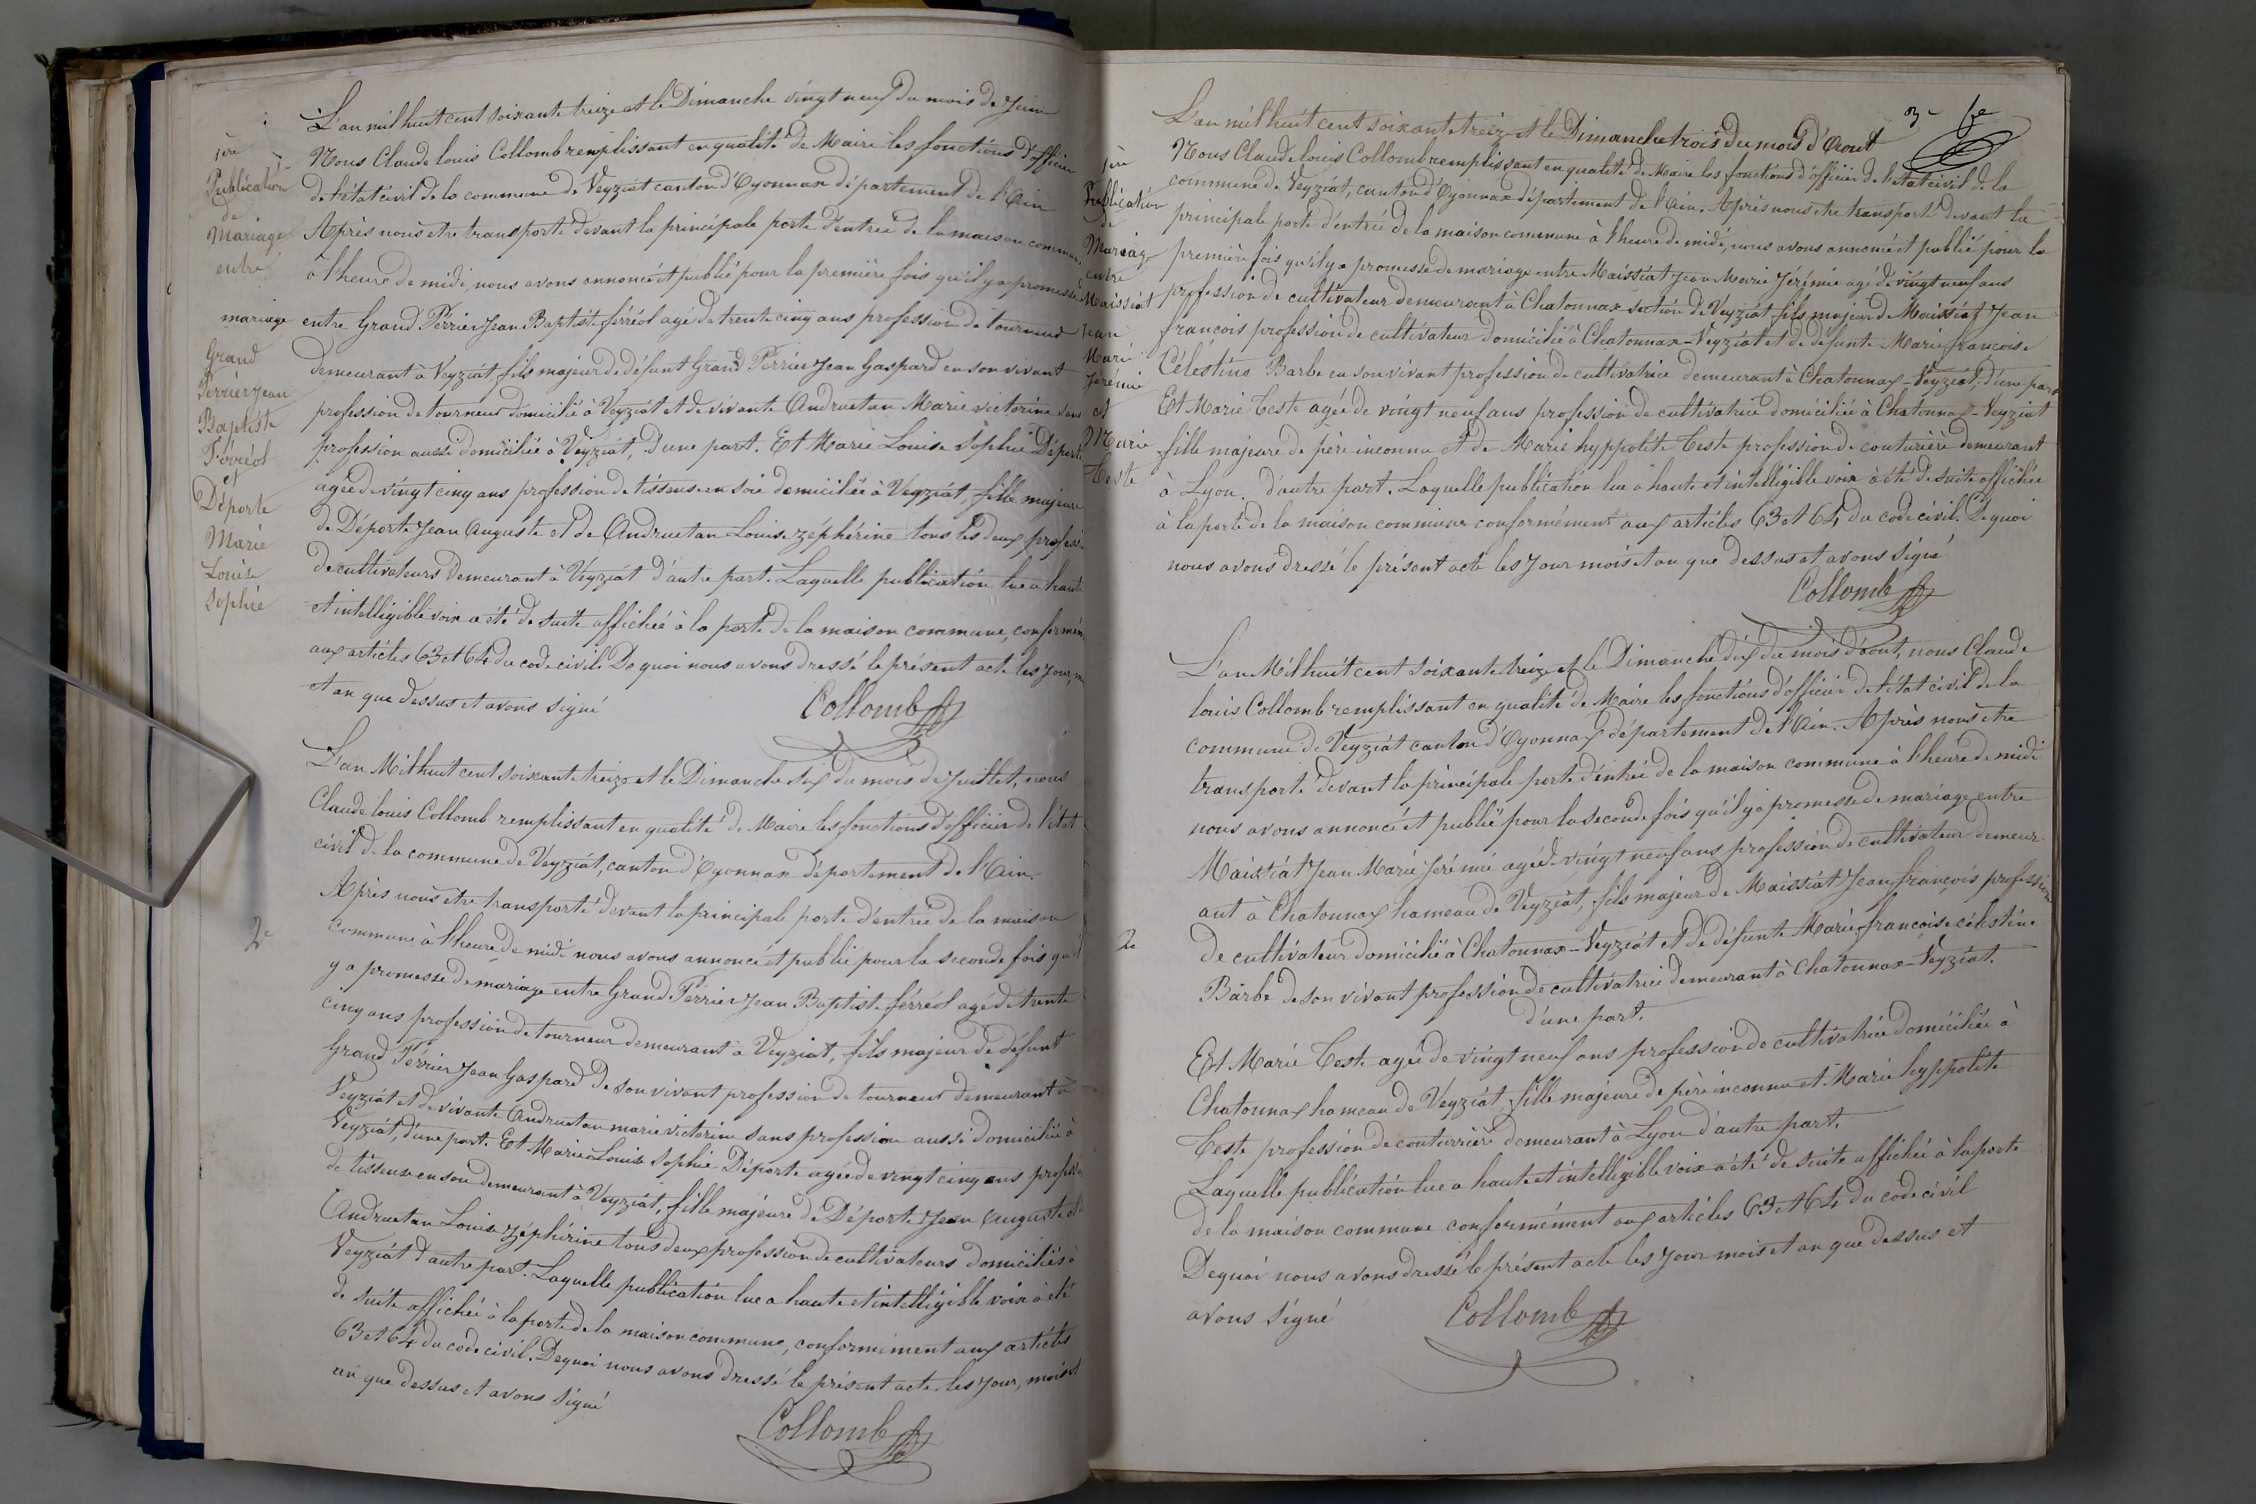 L'an mil huit cent soixante treize et le Dimanche vingt neuf du mois de Juin
Nous Claude louis Collomb remplissant en qualité de Maire les fonctions d'officier
de l'état civil de la commune de Veyziat canton d'Oyonnax département de l'Ain
Après nous etre transporté devant la principale porte d'entrée de la maison commune,
à l'heure de midi, nous avons annoncé et publié pour la première fois qu'il y a promesse de
mariage entre Grand Perrier Jean Baptiste férréol agé de trente cinq ans profession de tourneur
demeurant à Veyziat, fils majeur de défunt Grand Perrier Jean Gaspard en son vivant
profession de tourneur domicilié à Veyziat et de vivante Andruetan Marie victorine sans
profession aussi domiciliée à Veyziat, d'une part. Et Marie Louise Sophie Déporte
agée de vingt cinq ans profession de tisseuse en soie domiciliée à Veyziat, fille majeure
de Déporte Jean Auguste et de Andruetan Louise zéphérine tous les deux profess
de cultivateurs demeurant à Veyziat d'autre part. Laquelle publication lue a haute
et intelligible voix a été de suite affichée à la porte de la maison commune, conformém
aux articles 63 et 64 du code civil. De quoi nous avons dressé le présent acte les jour, m
et an que dessus et avons signé
Collomb
1ère
Publication
de
Mariage
entre
Grand
Perrier Jean
Baptiste
Férréol
et
Déporte
Marie
Louise
Sophie
L'an Mil huit cent soixante treize et le Dimanche six du mois de Juillet, nous
Claude louis Collomb remplissant en qualité de Maire les fonctions d'officier de l'état
civil de la commune de Veyziat, canton d'Oyonnax département de l'Ain.
Après nous etre transporté devant la principale porte d'entrée de la maison
2e
commune à l'heure de midi nous avons annoncé et publié pour la seconde fois qu'il
y a promesse de mariage entre Grand Perrier Jean Baptiste férréol agé de trente
cinq ans profession de tourneur demeurant à Veyziat, fils majeur de défunt
Grand Perrier Jean Gaspard de son vivant profession de tourneur demeurant à
Veyziat et de vivante Andruetan marie victorine sans profession aussi domiciliée à
Veyziat, d'une part. Et Marie Louise Sophie Déporte agée de vingt cinq ans profess
de tisseuse en soie demeurant à Veyziat, fille majeure de Déporte Jean Auguste et
Andruetan Louise zéphirine tous deux profession de cultivateurs domiciliés à
Veyziat d'autre part. Laquelle publication lue a haute et intelligible voix a été
de suite affichée à la porte de la maison commune, conformément aux articles
63 et 64 du code civil. De quoi nous avons dressé le présent acte les jour, mois et
an que dessus et avons signé
Collomb
3e fe
L'an mil huit cent soixante treize et le Dimanche trois du mois d'Aout
Nous Claude louis Collomb remplissant en qualité de Maire les fonctions d'officier de l'état civil de la
commune de Veyziat, canton d'Oyonnax département de l'Ain. Après nous etre transporté devant la
principale porte d'entrée de la maison commune à l'heure de midi, nous avons annoncé et publié pour la
première fois qu'il y a promesse de mariage entre Maissiat Jean Marie Jérémie agé de vingt neuf ans
profession de cultivateur demeurant à Chatonnax section de Veyziat, fils majeur de Maissiat Jean
françois profession de cultivateur domicilié à Chatonnax-Veyziat et de défunte Marie francoise
Célestine Barbe en son vivant profession de cultivatrice demeurant à Chatonnax-Veyziat, d'une part
Et Marie Ceste agée de vingt neuf ans profession de cultivatrice domiciliée à Chatonnax-Veyziat
fille majeure de père inconnu et de Marie hyppolite Ceste profession de couturière demeurant
à Lyon. d'autre part. Laquelle publication lue à haute et intelligible voix a été de suite affichée
à la porte de la maison commune conformément aux articles 63 et 64 du code civil. De quoi
nous avons dressé le présent acte les jour mois et an que dessus et avons signé
Collomb
1ère
Publication
de
Mariage
entre
Maissiat
Jean
Marie
Jérémie
et
Marie
Ceste
L'an Mil huit cent soixante treize et le Dimanche dix du mois d'aout, nous Claude
louis Collomb remplissant en qualité de Maire les fonctions d'officier de l'état civil de la
commune de Veyziat canton d'Oyonnax département de l'Ain. Après nous etre
transporté devant la principale porte d'entrée de la maison commune à l'heure de midi
nous avons annoncé et publié pour la seconde fois qu'il y a promesse de mariage entre
Maissiat Jean Marie Jérémie agé de vingt neuf ans profession de cultivateur demeur-
ant à Chatonnax hameau de Veyziat, fils majeur de Maissiat Jean françois profession
2e
de cultivateur domicilié à Chatonnax-Veyziat et de défunte Marie françoise célestine
Barbe de son vivant profession de cultivatrice demeurant à Chatonnax-Veyziat.
d'une part.
Et Marie Ceste agée de vingt neuf ans profession de cultivatrice domiciliée à
Chatonnax hameau de Veyziat fille majeure de père inconnu et Marie hyppolite
Ceste profession de couturrière demeurant à Lyon d'autre part.
Laquelle publication lue a haute et intelligible voix a été de suite affichée à la porte
de la maison commune conformément aux articles 63 et 64 du code civil
De quoi nous avons dressé le présent acte les jour mois et an que dessus et
avons signé
Collomb